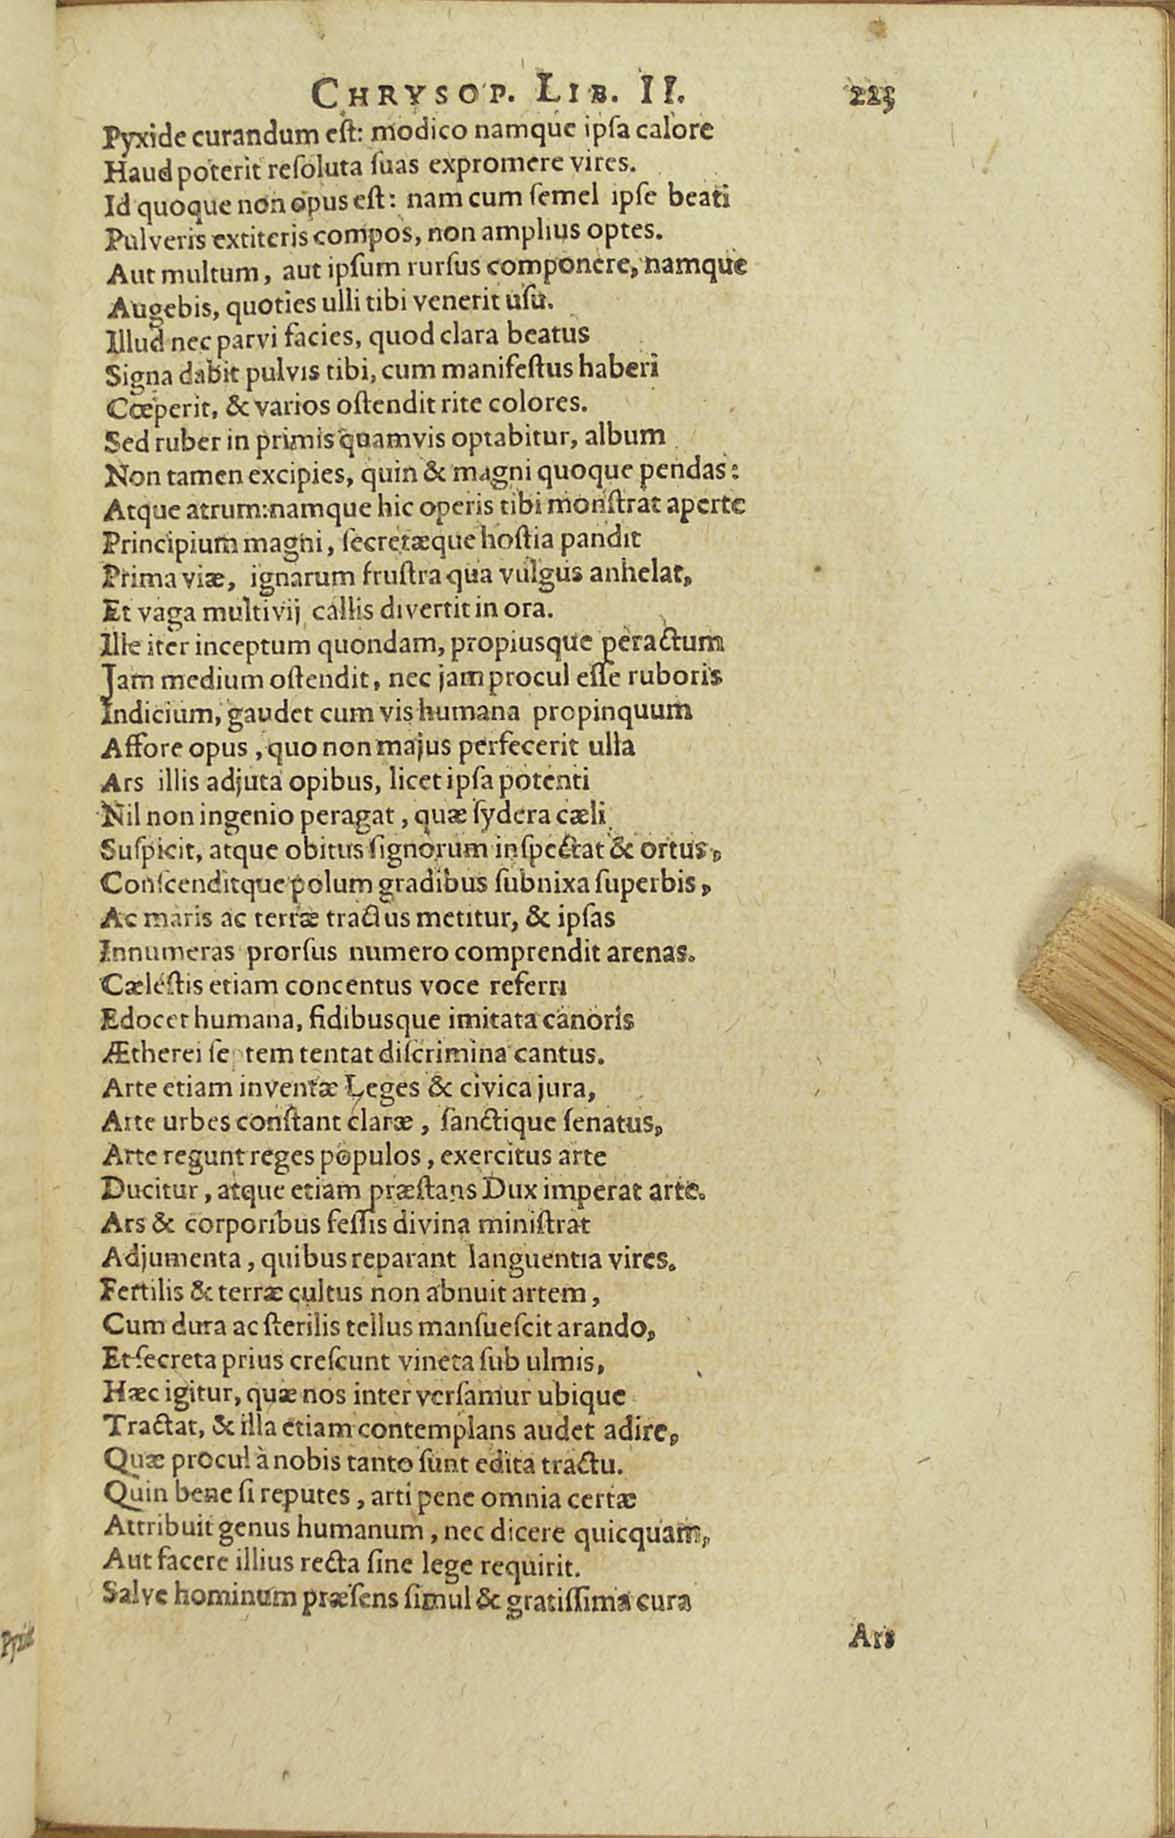 CHRYSOP. LIB. II. 223
Pyxide curandum eſt: modico namque ipſa calore
Haud poterit reſoluta ſuas expromere vires.
Id quoque non opus eſt: nam cum ſemel ipſe beati
Pulveris extiteris compos, non amplius optes.
Aut multum, aut ipſum rurſus componere, namque
Augebis, quoties ulli tibi venerit uſu.
Illud nec parvi facies, quod clara beatus
Signa dabit pulvis tibi, cum manifeſtus haberi
Cœperit, & varios oſtendit rite colores.
Sed ruber in primis quamvis optabitur, album
Non tamen excipies, quin & magni quoque pendas:
Atque atrum:namque hic operis tibi monſtrat aperte
Principium magni, ſecretæque hoſtia pandit
Prima viæ, ignarum fruſtra qua vulgus anhelat,
Et vaga multivij callis divertit in ora.
Ille iter inceptum quondam, propiusque peractum
Jam medium oſtendit, nec jam procul eſſe ruboris
Indicium, gaudet cum vis humana propinquum
Affore opus, quo non majus perfecerit ulla
Ars illis adjuta opibus, licet ipſa potenti
Nil non ingenio peragat, quæ ſydera cæli
Suſpicit, atque obitus ſignorum inſpectat & ortus,
Conſcenditque polum gradibus ſubnixa ſuperbis,
Ac maris ac terræ tractus metitur, & ipſas
Innumeras prorſus numero comprendit arenas.
Cæleſtis etiam concentus voce referri
Edocet humana, fidibusque imitata canoris
Ætherei ſeptem tentat diſcrimina cantus.
Arte etiam inventæ Leges & civica jura,
Arte urbes conſtant claræ, ſanctique ſenatus,
Arte regunt reges populos, exercitus arte
Ducitur, atque etiam præſtans Dux imperat arte.
Ars & corporibus feſſis divina miniſtrat
Adjumenta, quibus reparant languentia vires.
Fertilis & terræ cultus non abnuit artem,
Cum dura ac ſterilis tellus manſueſcit arando,
Et ſecreta prius creſcunt vineta ſub ulmis,
Hæc igitur, quæ nos inter verſamur ubique
Tractat, & illa etiam contemplans audet adire,
Quæ procul à nobis tanto ſunt edita tractu.
Quin bene ſi reputes, arti pene omnia certæ
Attribuit genus humanum, nec dicere quicquam,
Aut facere illius recta ſine lege requirit.
Salve hominum præſens ſimul & gratiſſima cura
Ars
Pyxide